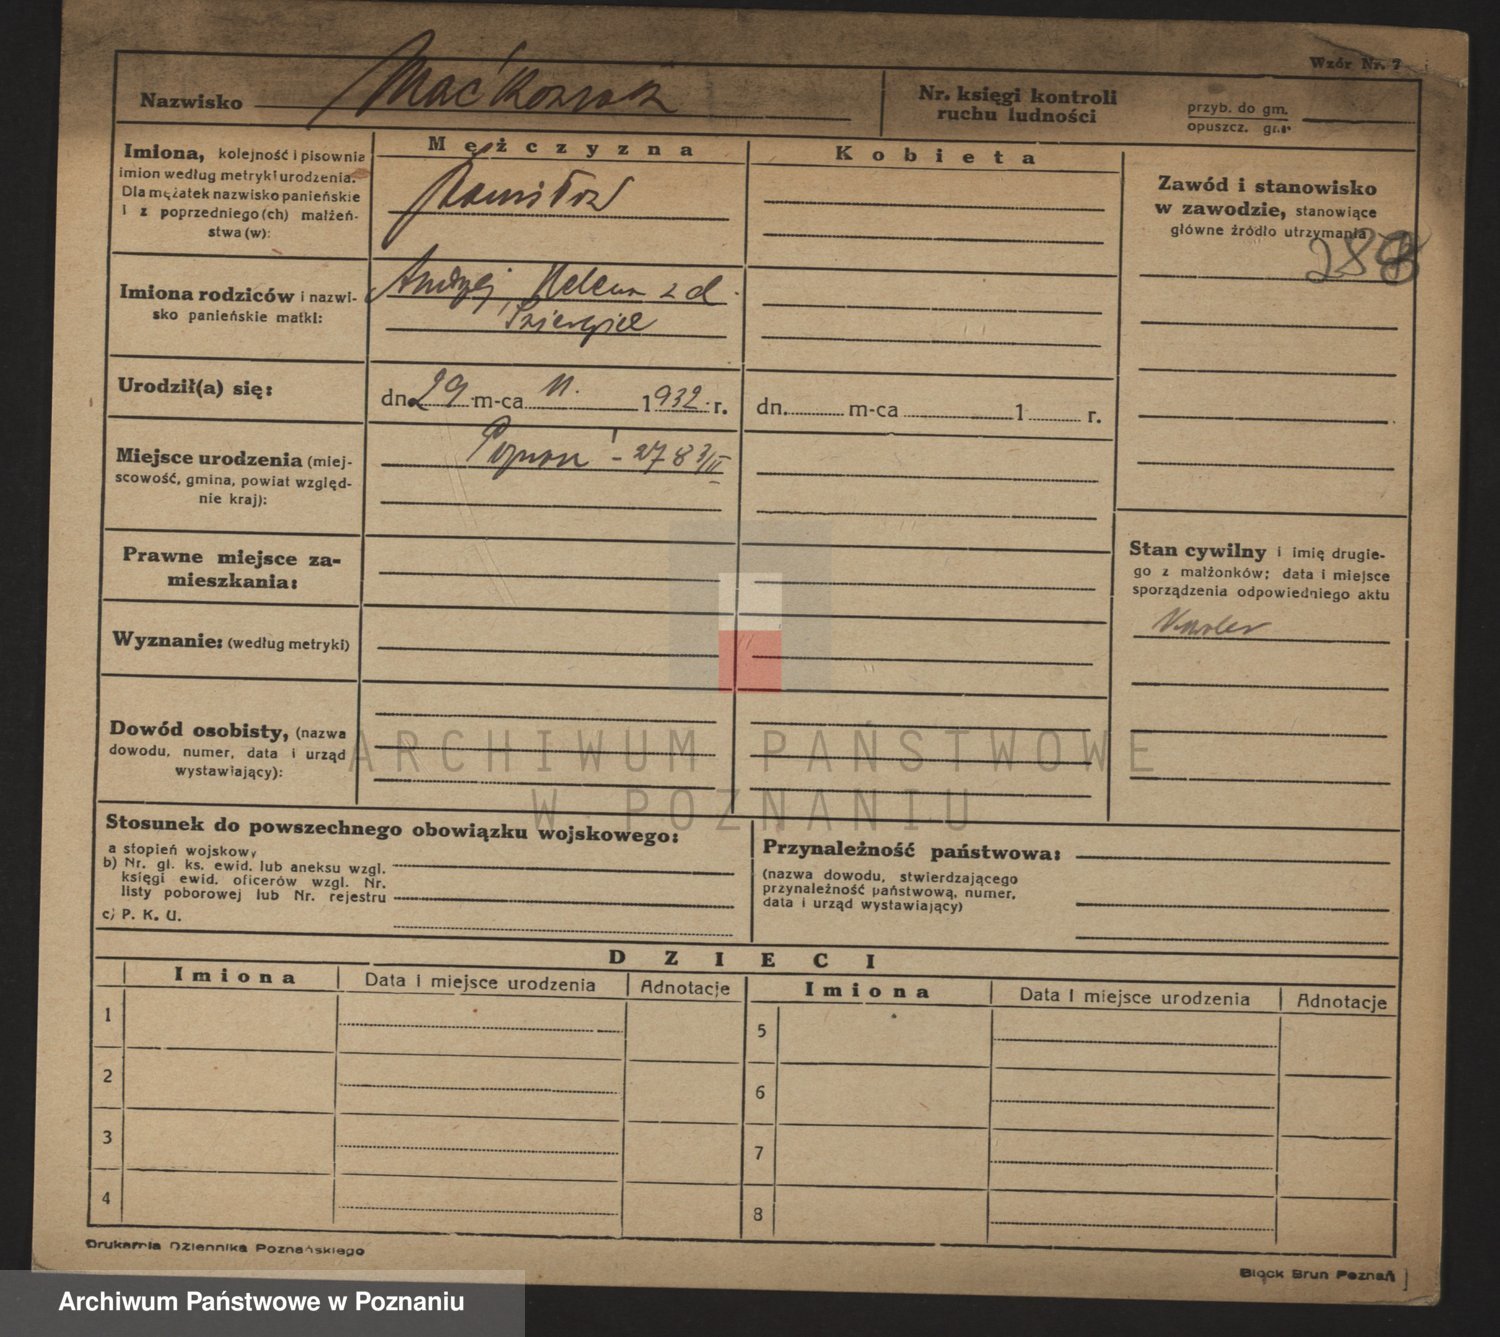 Wzór Nr. 7
Nazwisko Maćkowiak
Nr. księgi kontroli
ruchu ludności
przyb. do gm.
opuszcz. gm.
Mężczyzna
Kobieta
Imiona, kolejność i pisownia
imion według metryki urodzenia.
Dla mężatek nazwisko panieńskie
i z poprzedniego (ch) małżeń-
stwa (w):
Zawód i stanowisko
w zawodzie, stanowiące
główne źródło utrzymania
288
Imiona rodziców i nazwi-
sko panieńskie matki:
Andrzej, Helena z d.
Urodził(a) się:
dn. 29 m-ca 11. 1932 r.
dn. m-ca 1 r.
Miejsce urodzenia (miej-
scowość, gmina, powiat względ-
nie kraj):
Poznań - 2783/II
Prawne miejsce za-
mieszkania:
Stan cywilny i imię drugie-
go z małżonków; data i miejsce
sporządzenia odpowiedniego aktu
Wyznanie: (według metryki)
Dowód osobisty, (nazwa
dowodu, numer, data i urząd
wystawiający):
ARCHIWUM PAŃSTWOWE
W POZNANIU
Stosunek do powszechnego obowiązku wojskowego:
a stopień wojskowy
b) Nr. gł. ks. ewid. lub aneksu wzgl.
księgi ewid. oficerów wzgl. Nr.
listy poborowej lub Nr. rejestru
c) P. K. U.
Przynależność państwowa:
(nazwa dowodu, stwierdzającego
przynależność państwową, numer,
data i urząd wystawiający)
DZIECI
Imiona Data i miejsce urodzenia Adnotacje Imiona Data i miejsce urodzenia Adnotacje
1 5
2 6
3 7
4 8
Drukarnia Dziennika Poznańskiego
Block Brun Poznań
Archiwum Państwowe w Poznaniu